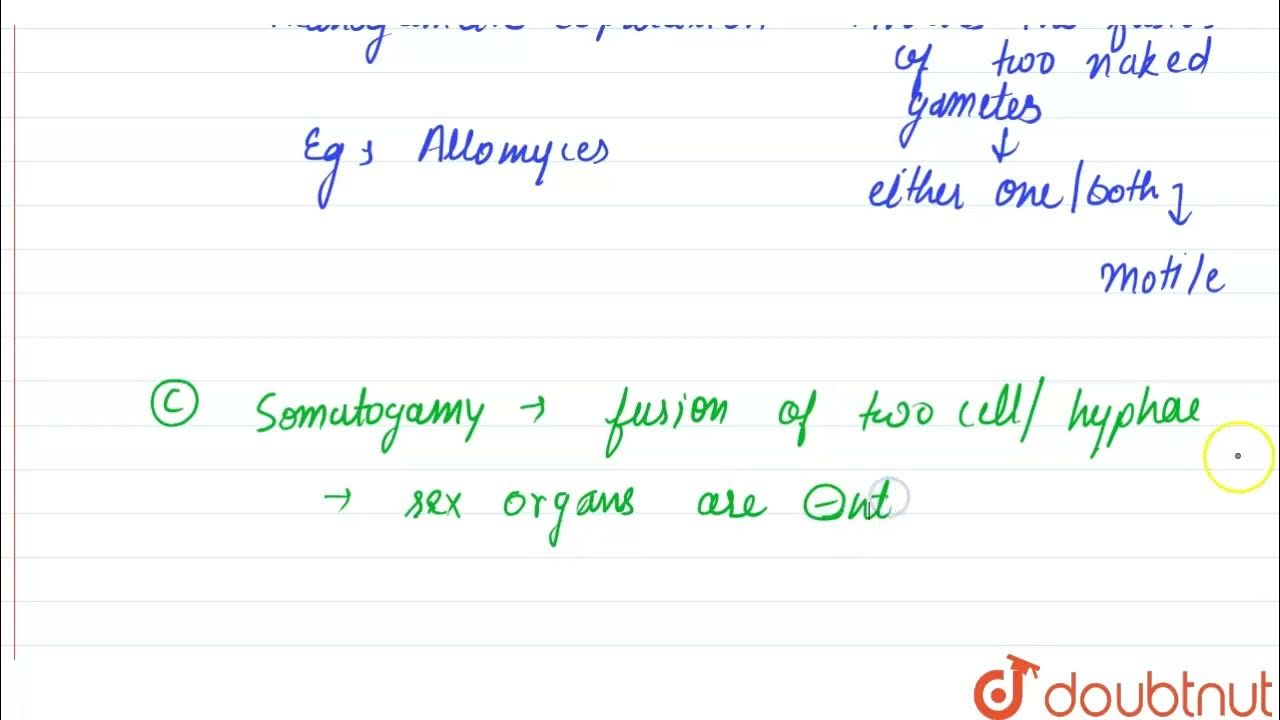 of two naked
gametes
↓
Eg, Allomyces
either one/both ↓
motile
Ⓒ Somatogamy → fusion of two cell/ hyphae
→ sex organs are ⊖nt
doubtnut